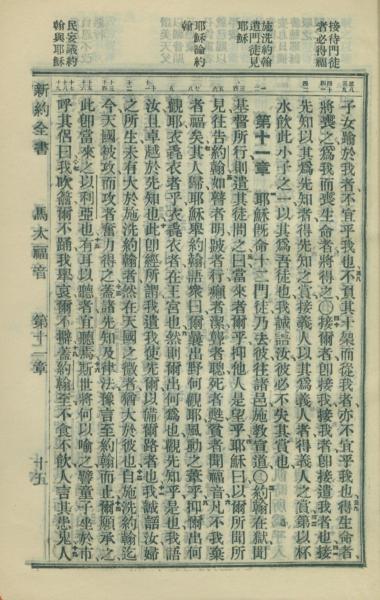 接待門徒
者必得福
施洗約翰
遣門徒見
耶穌
耶穌論約
翰
民妄議約
翰與耶穌
子女踰於我者不宜乎我也不負其十架而從我者亦不宜乎我也得生命者
將喪之爲我而喪生命者將得之〇接爾者卽接我接我者卽接遣我者也接
先知以其爲先知者得先知之賞接義人以其爲義人者得義人之賞第以杯
水飲此小子之一以其爲吾徒也我誠語汝彼必不失其賞也
第十一章 耶穌旣命十二門徒乃去彼往諸邑施教宣道〇約翰在獄聞
基督所行則遣其徒問之曰當來者爾乎抑他人是望乎耶穌曰以爾所聞所
見往告約翰如瞽者明跛者行癩者潔聾者聽死者甦貧者聞福音凡不我棄
者福矣其人歸耶穌舉約翰語衆曰爾曩出野何觀耶風動之葦乎抑爾出何
觀耶衣毳衣者乎衣毳衣者在王宮也然則爾出何爲也觀先知乎是也我語
汝且卓越於先知也此卽經所謂我遣我使先爾以備爾路者也我誠語汝婦
之所生未有大於施洗約翰者然在天國之微者猶大於彼也自施洗約翰迄
今天國被攻而攻者奮力得之蓋諸先知及律法預言至約翰而止爾願承之
此卽當來之以利亞也有耳以聽者宜聽焉斯世將何以喻之譬童子坐於市
呼其侶曰我吹籥爾不踊我舉哀爾不躃蓋約翰至不食不飲人言其患鬼人
新約全書 馬太福音 第十一章 十五